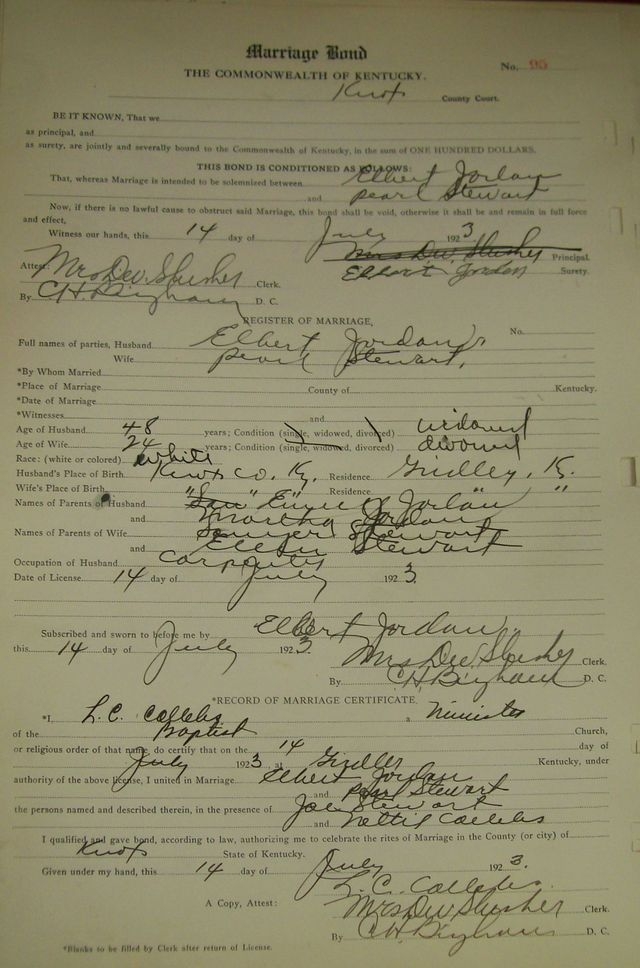 Marriage Bond
No. 95
THE COMMONWEALTH OF KENTUCKY.
Knox County Court.
BE IT KNOWN, That we
as principal, and
as surety, are jointly and severally bound to the Commonwealth of Kentucky, in the sum of ONE HUNDRED DOLLARS.
THIS BOND IS CONDITIONED AS FOLLOWS:
That, whereas Marriage is intended to be solemnized between Elbert Jordan
and Pearl Stewart
Now, if there is no lawful cause to obstruct said Marriage, this bond shall be void, otherwise it shall be and remain in full force
and effect,
Witness our hands, this 14 day of July 1923
Mrs Dew Slusher Principal.
Attest: Mrs Dew Slusher Clerk. Elbert Jordan Surety.
By CH Bingham D. C.
REGISTER OF MARRIAGE,
No.
Full names of parties, Husband Elbert Jordan
Wife Pearl Stewart,
*By Whom Married
*Place of Marriage County of Kentucky.
*Date of Marriage
*Witnesses and
Age of Husband 48 years; Condition (single, widowed, divorced) widowed
Age of Wife 24 years; Condition (single, widowed, divorced) divorced
Race: (white or colored) White
Husband's Place of Birth Knox Co. Ky. Residence Gridley, K.
Wife's Place of Birth " " " Residence " "
Names of Parents of Husband Jordan
and Martha Jordan
Names of Parents of Wife Stewart
and Ellen Stewart
Occupation of Husband Carpenter
Date of License 14 day of July 1923
Elbert Jordan
Subscribed and sworn to before me by
this 14 day of July 1923 Mrs Dew Slusher Clerk.
By CH Bingham D. C.
*RECORD OF MARRIAGE CERTIFICATE.
*I, L. C. Callebs a Minister
of the Baptist Church,
or religious order of that name, do certify that on the 14 day of
July 1923, at Kentucky, under
authority of the above license, I united in Marriage Elbert Jordan
and Pearl Stewart
the persons named and described therein, in the presence of Joe Stewart
and Nettie Callebs
I qualified and gave bond, according to law, authorizing me to celebrate the rites of Marriage in the County (or city) of
Knox State of Kentucky.
Given under my hand, this 14 day of July 1923.
L. C. Callebs
A Copy, Attest: Mrs Dew Slusher Clerk.
By CH Bingham D. C.
*Blanks to be filled by Clerk after return of License.